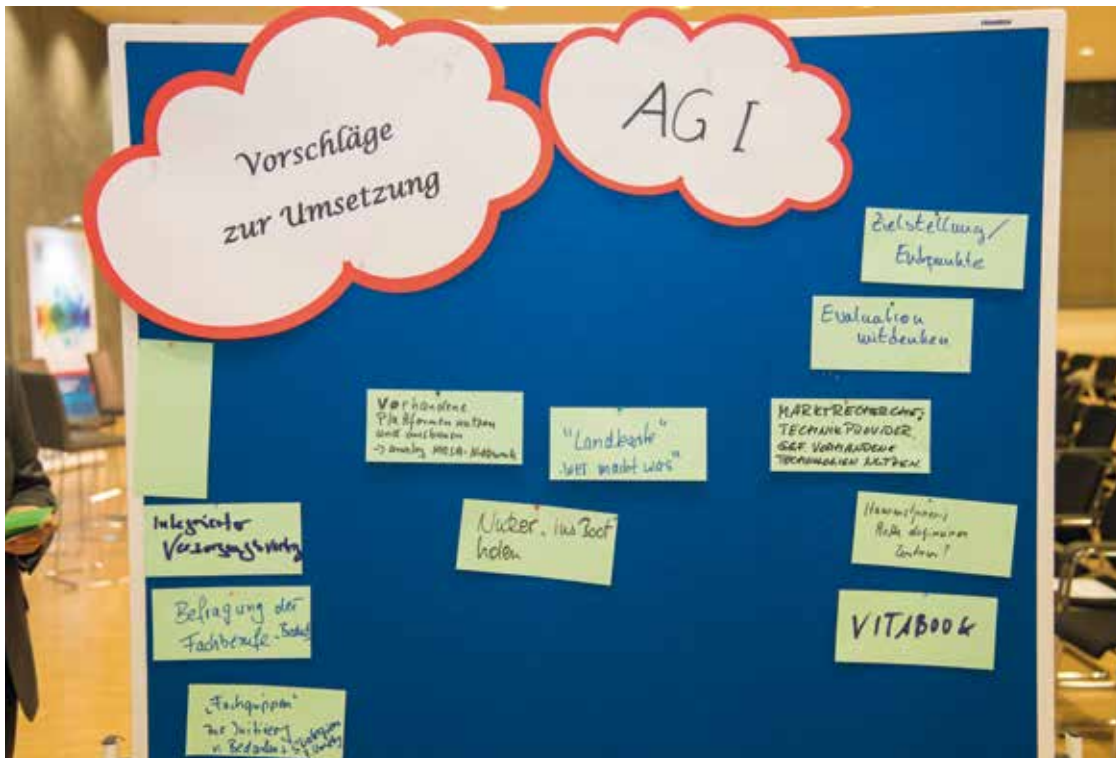 Vorschläge
zur Umsetzung
AG I
Zielstellung/
Endpunkte
Evaluation
mitdenken
Vorhandene
Plattformen nutzen
und ausbauen
-> analog MRSA-Netzwerk
"Landkarte"
"wer macht was"
MARKTRECHERCHE;
TECHNIKPROVIDER,
GGF. VORHANDENE
TECHNOLOGIEN NUTZEN.
Integrierter
Versorgungsvertrag
Nutzer ins Boot
holen
Zentrum?
Befragung der
Fachberufe-Bedarf
VITABOOK
"Fachgruppen"
zur
v. Bedarfen +